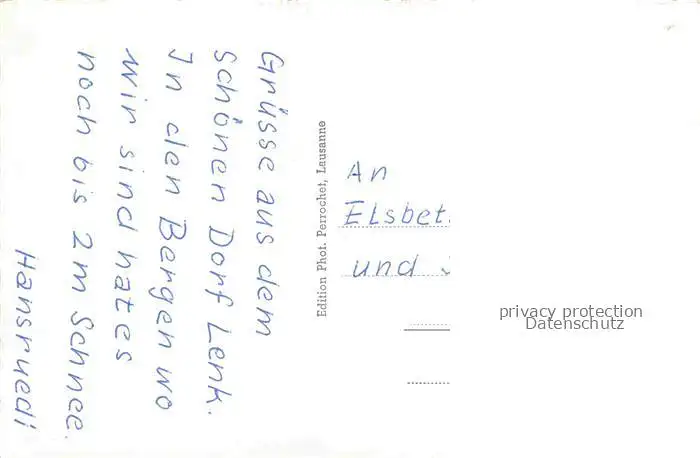 Grüsse aus dem
Schönen Dorf Lenk.
In den Bergen wo
wir sind hat es
noch bis 2 m Schnee.
Hansruedi
Edition Phot. Perrochet, Lausanne
An
Elsbet
und
privacy protection
Datenschutz